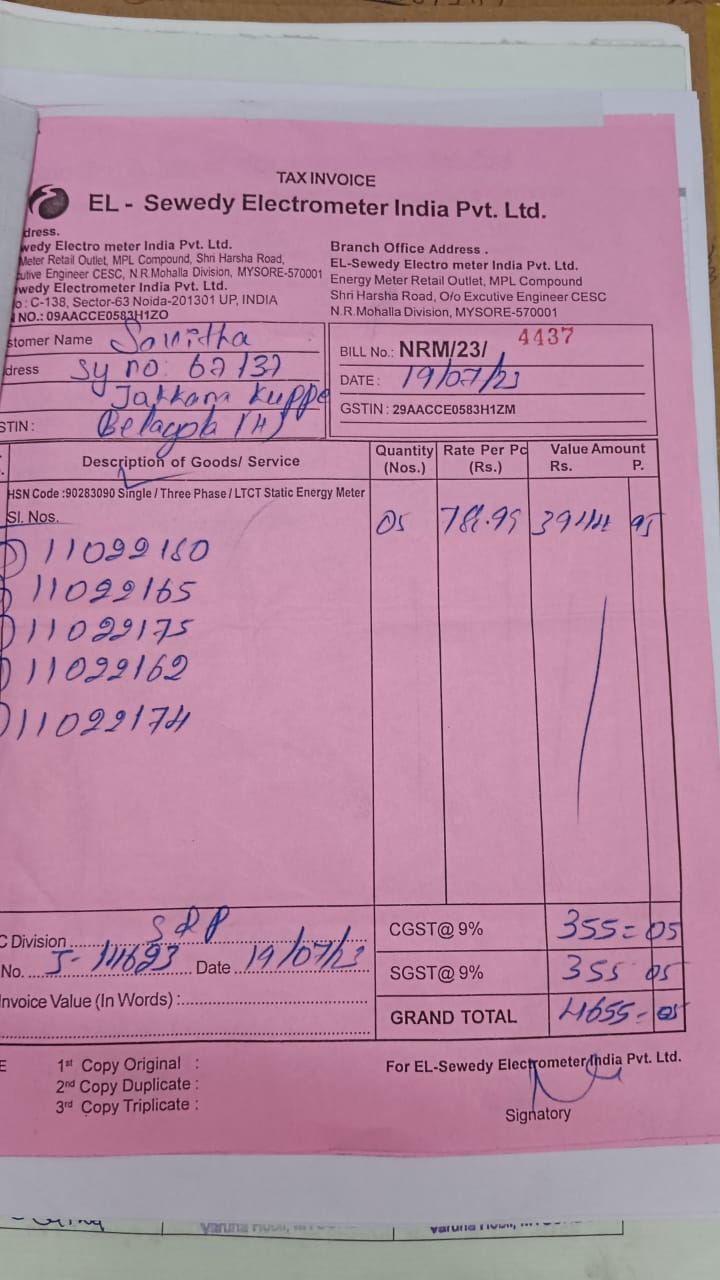 TAX INVOICE
EL - Sewedy Electrometer India Pvt. Ltd.
dress.
wedy Electro meter India Pvt. Ltd.
Meter Retail Outlet, MPL Compound, Shri Harsha Road,
utive Engineer CESC, N.R.Mohalla Division, MYSORE-570001
wedy Electrometer India Pvt. Ltd.
o : C-138, Sector-63 Noida-201301 UP, INDIA
NO.: 09AACCE0583H1ZO
Branch Office Address .
EL-Sewedy Electro meter India Pvt. Ltd.
Energy Meter Retail Outlet, MPL Compound
Shri Harsha Road, O/o Excutive Engineer CESC
N.R.Mohalla Division, MYSORE-570001
stomer Name Savitha
dress Sy no: 67/37
Jattkam Kuppe
STIN: Belagola (H)
BILL No.: NRM/23/ 4437
DATE : 19/07/23
GSTIN : 29AACCE0583H1ZM
Description of Goods/ Service Quantity (Nos.) Rate Per Pc (Rs.) Value Amount Rs. P.
HSN Code :90283090 Single / Three Phase / LTCT Static Energy Meter
Sl. Nos. 05 788.99 3944 95
11022180
11022165
11022175
11022162
11022174
C Division SRP
No. J-14623 Date 19/07/23
Invoice Value (In Words) :
CGST@ 9% 355=05
SGST@ 9% 355 05
GRAND TOTAL 4655=05
E 1st Copy Original :
2nd Copy Duplicate :
3rd Copy Triplicate :
For EL-Sewedy Electrometer India Pvt. Ltd.
Signatory